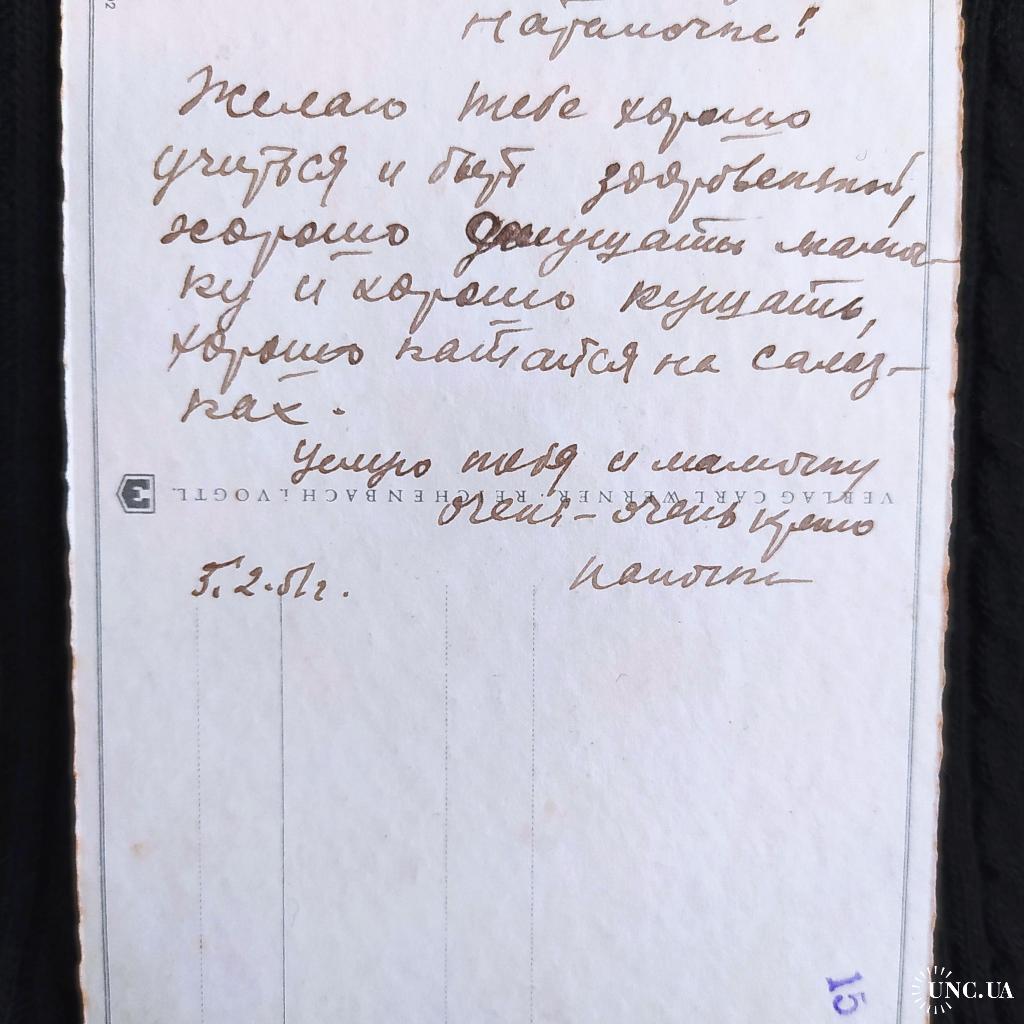 Наталочке!
Желаю тебе хорошо
учиться и быть здоровенькой,
хорошо слушать мамоч-
ку и хорошо кушать,
хорошо кататся на салаз-
ках.
Целую тебя и мамочку
VERLAG CARL WERNER · REICHENBACH i. VOGTL.
очень-очень крепко
5.2.51г. Папочка
15
UNC.UA